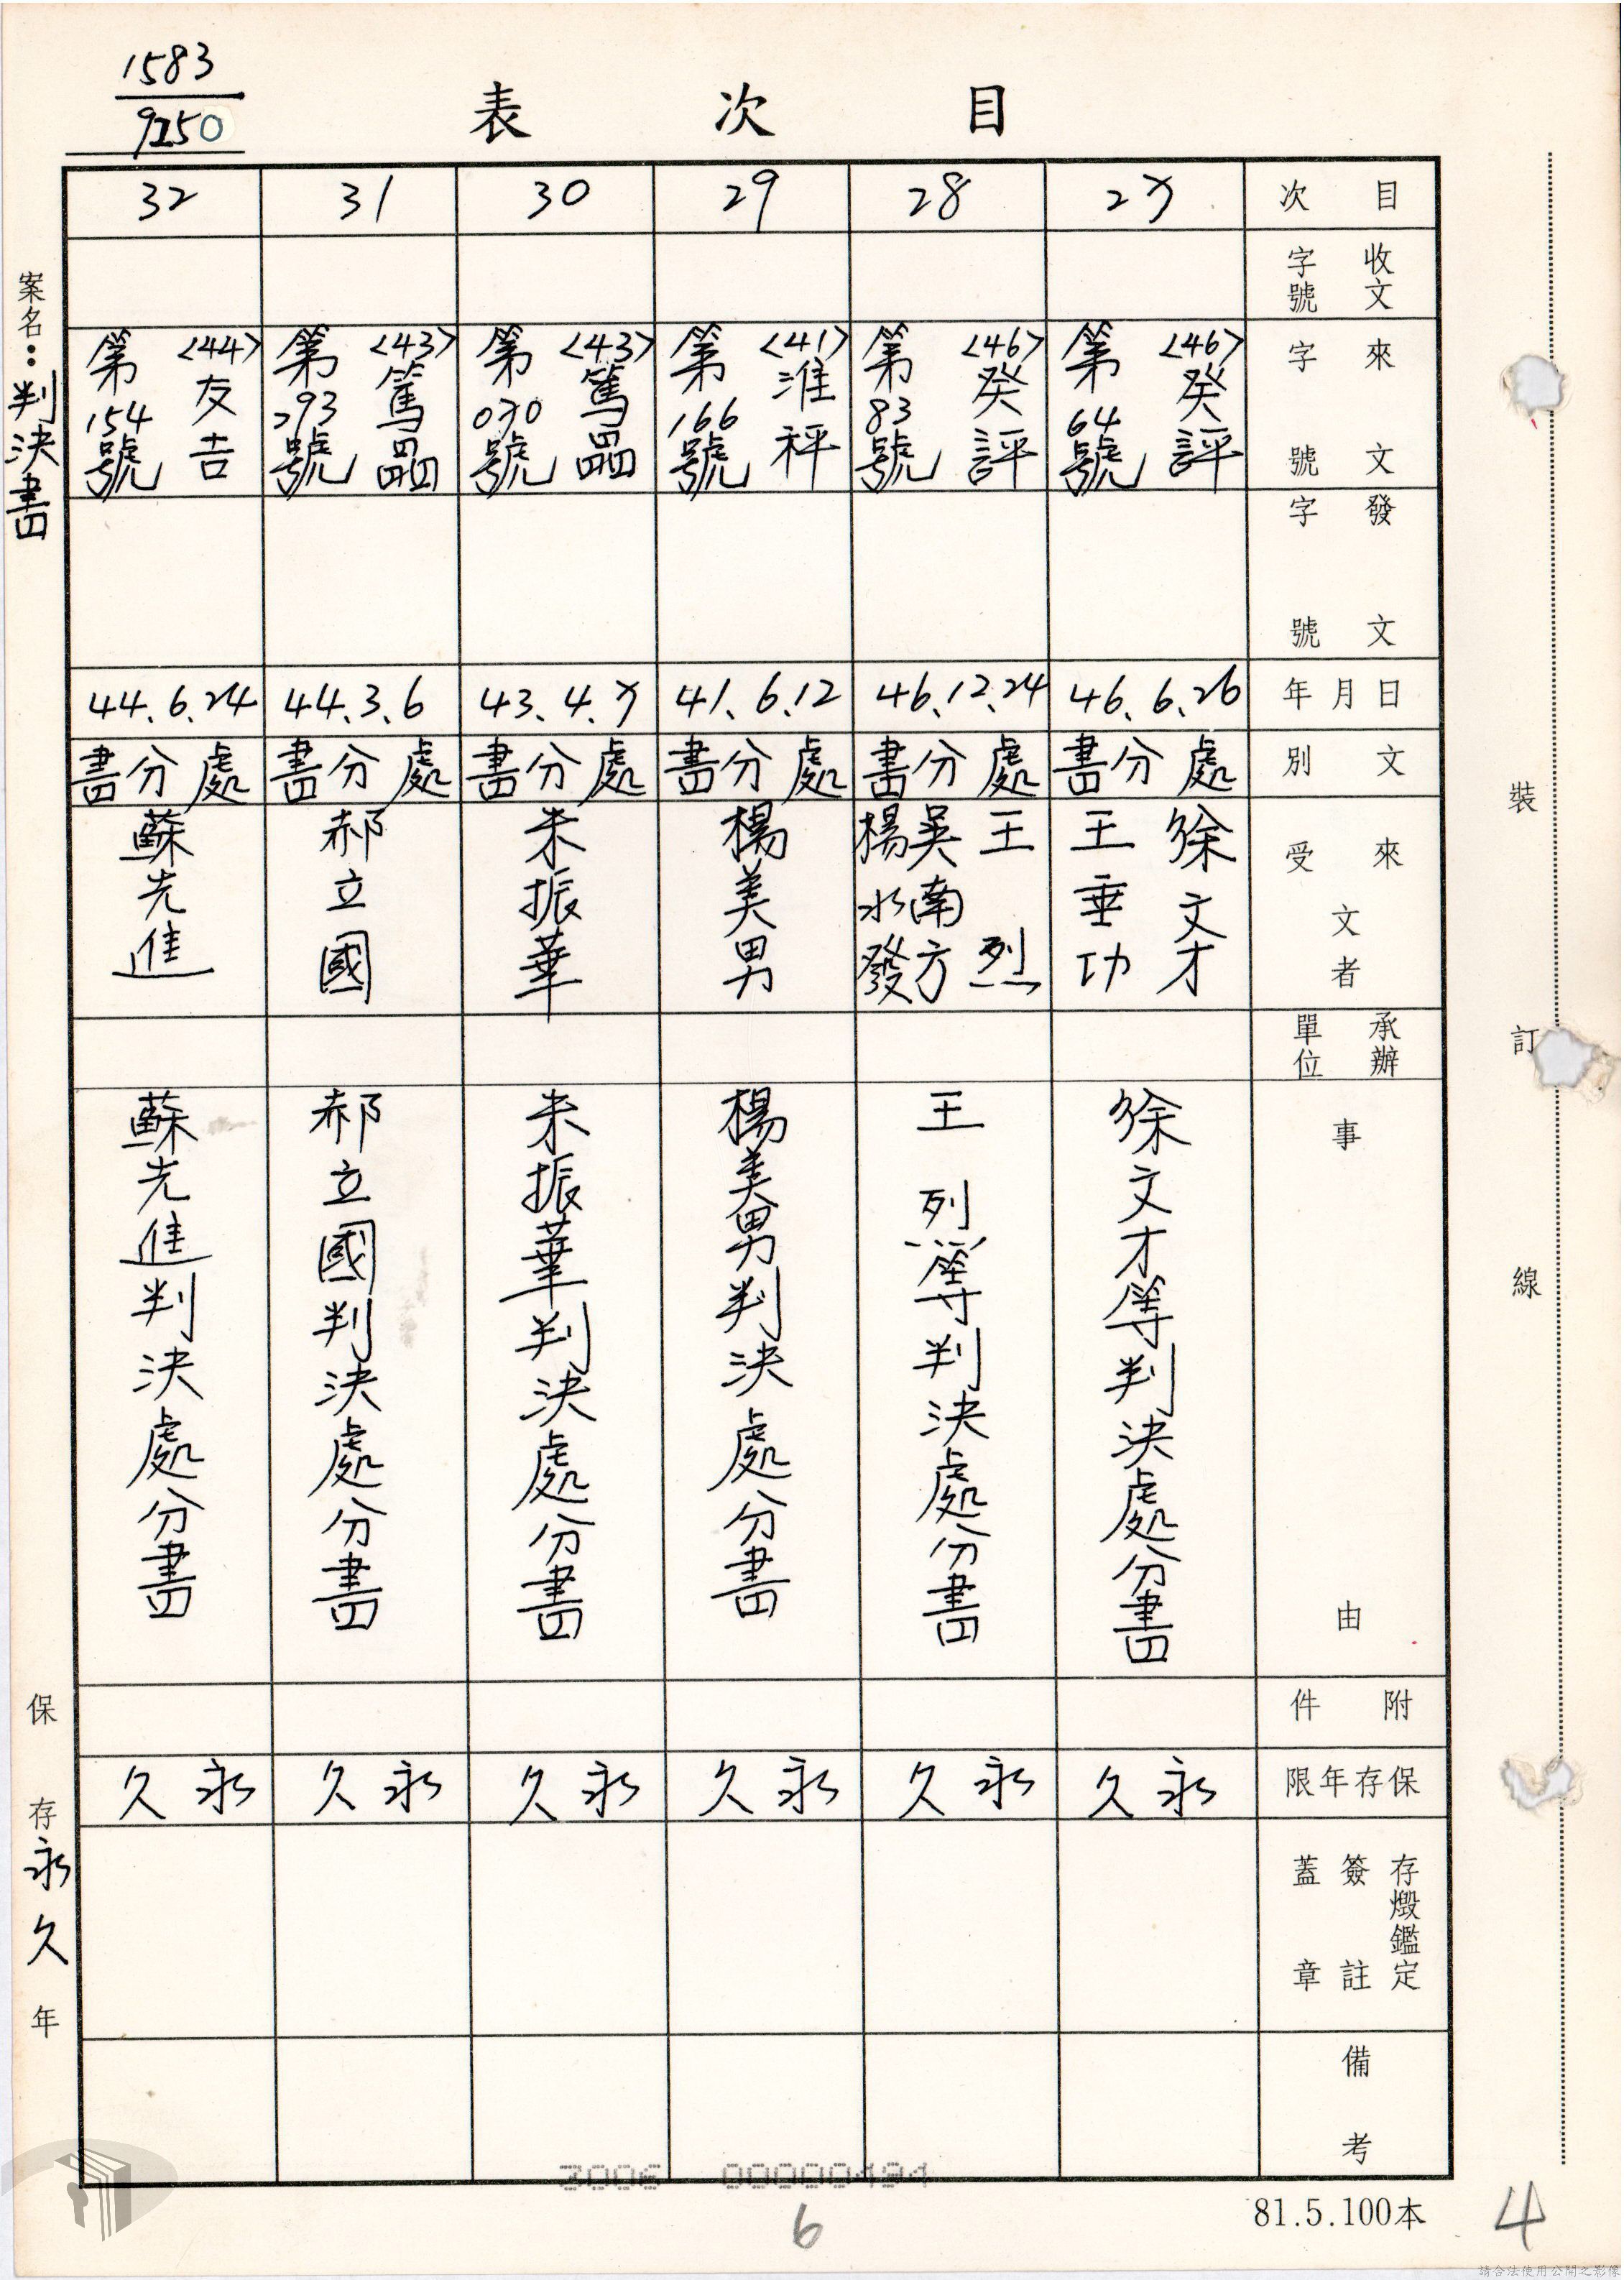 1583
9250
目次表
案名：判決書
保存永久年
目次
收文字號
來文字號
發文字號
年月日
文別
來受文者
承辦單位
事由
附件
保存年限
存燬鑑定簽註蓋章
備考
27
<46>癸評
第64號
46.6.26
處分書
徐文才
王垂功
徐文才等判決處分書
永久
28
<46>癸評
第83號
46.12.24
處分書
王烈
吳南方
楊水發
王烈等判決處分書
永久
29
<41>淮秤
第166號
41.6.12
處分書
楊美男
楊美男判決處分書
永久
30
<43>篤
第070號
43.4.7
處分書
朱振華
朱振華判決處分書
永久
31
<43>篤
第293號
44.3.6
處分書
郝立國
郝立國判決處分書
永久
32
<44>友吉
第154號
44.6.24
處分書
蘇先進
蘇先進判決處分書
永久
裝訂線
3006 00000494
6
81.5.100本
4
請合法使用公開之影像